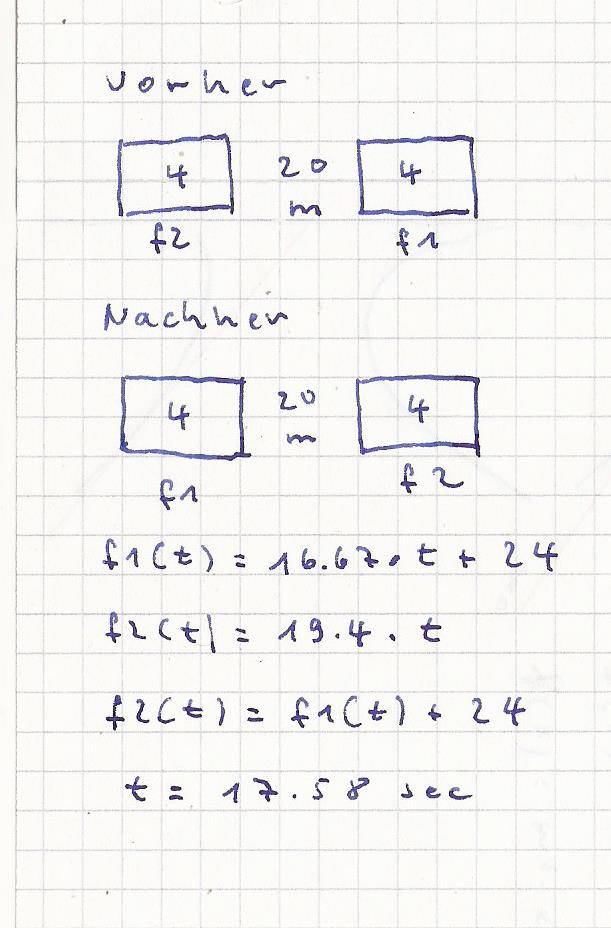 Vorher
4 20 4
m
f2 f1
Nachher
4 20 4
m
f1 f2
f1(t) = 16.67 · t + 24
f2(t) = 19.4 · t
f2(t) = f1(t) + 24
t = 17.58 sec